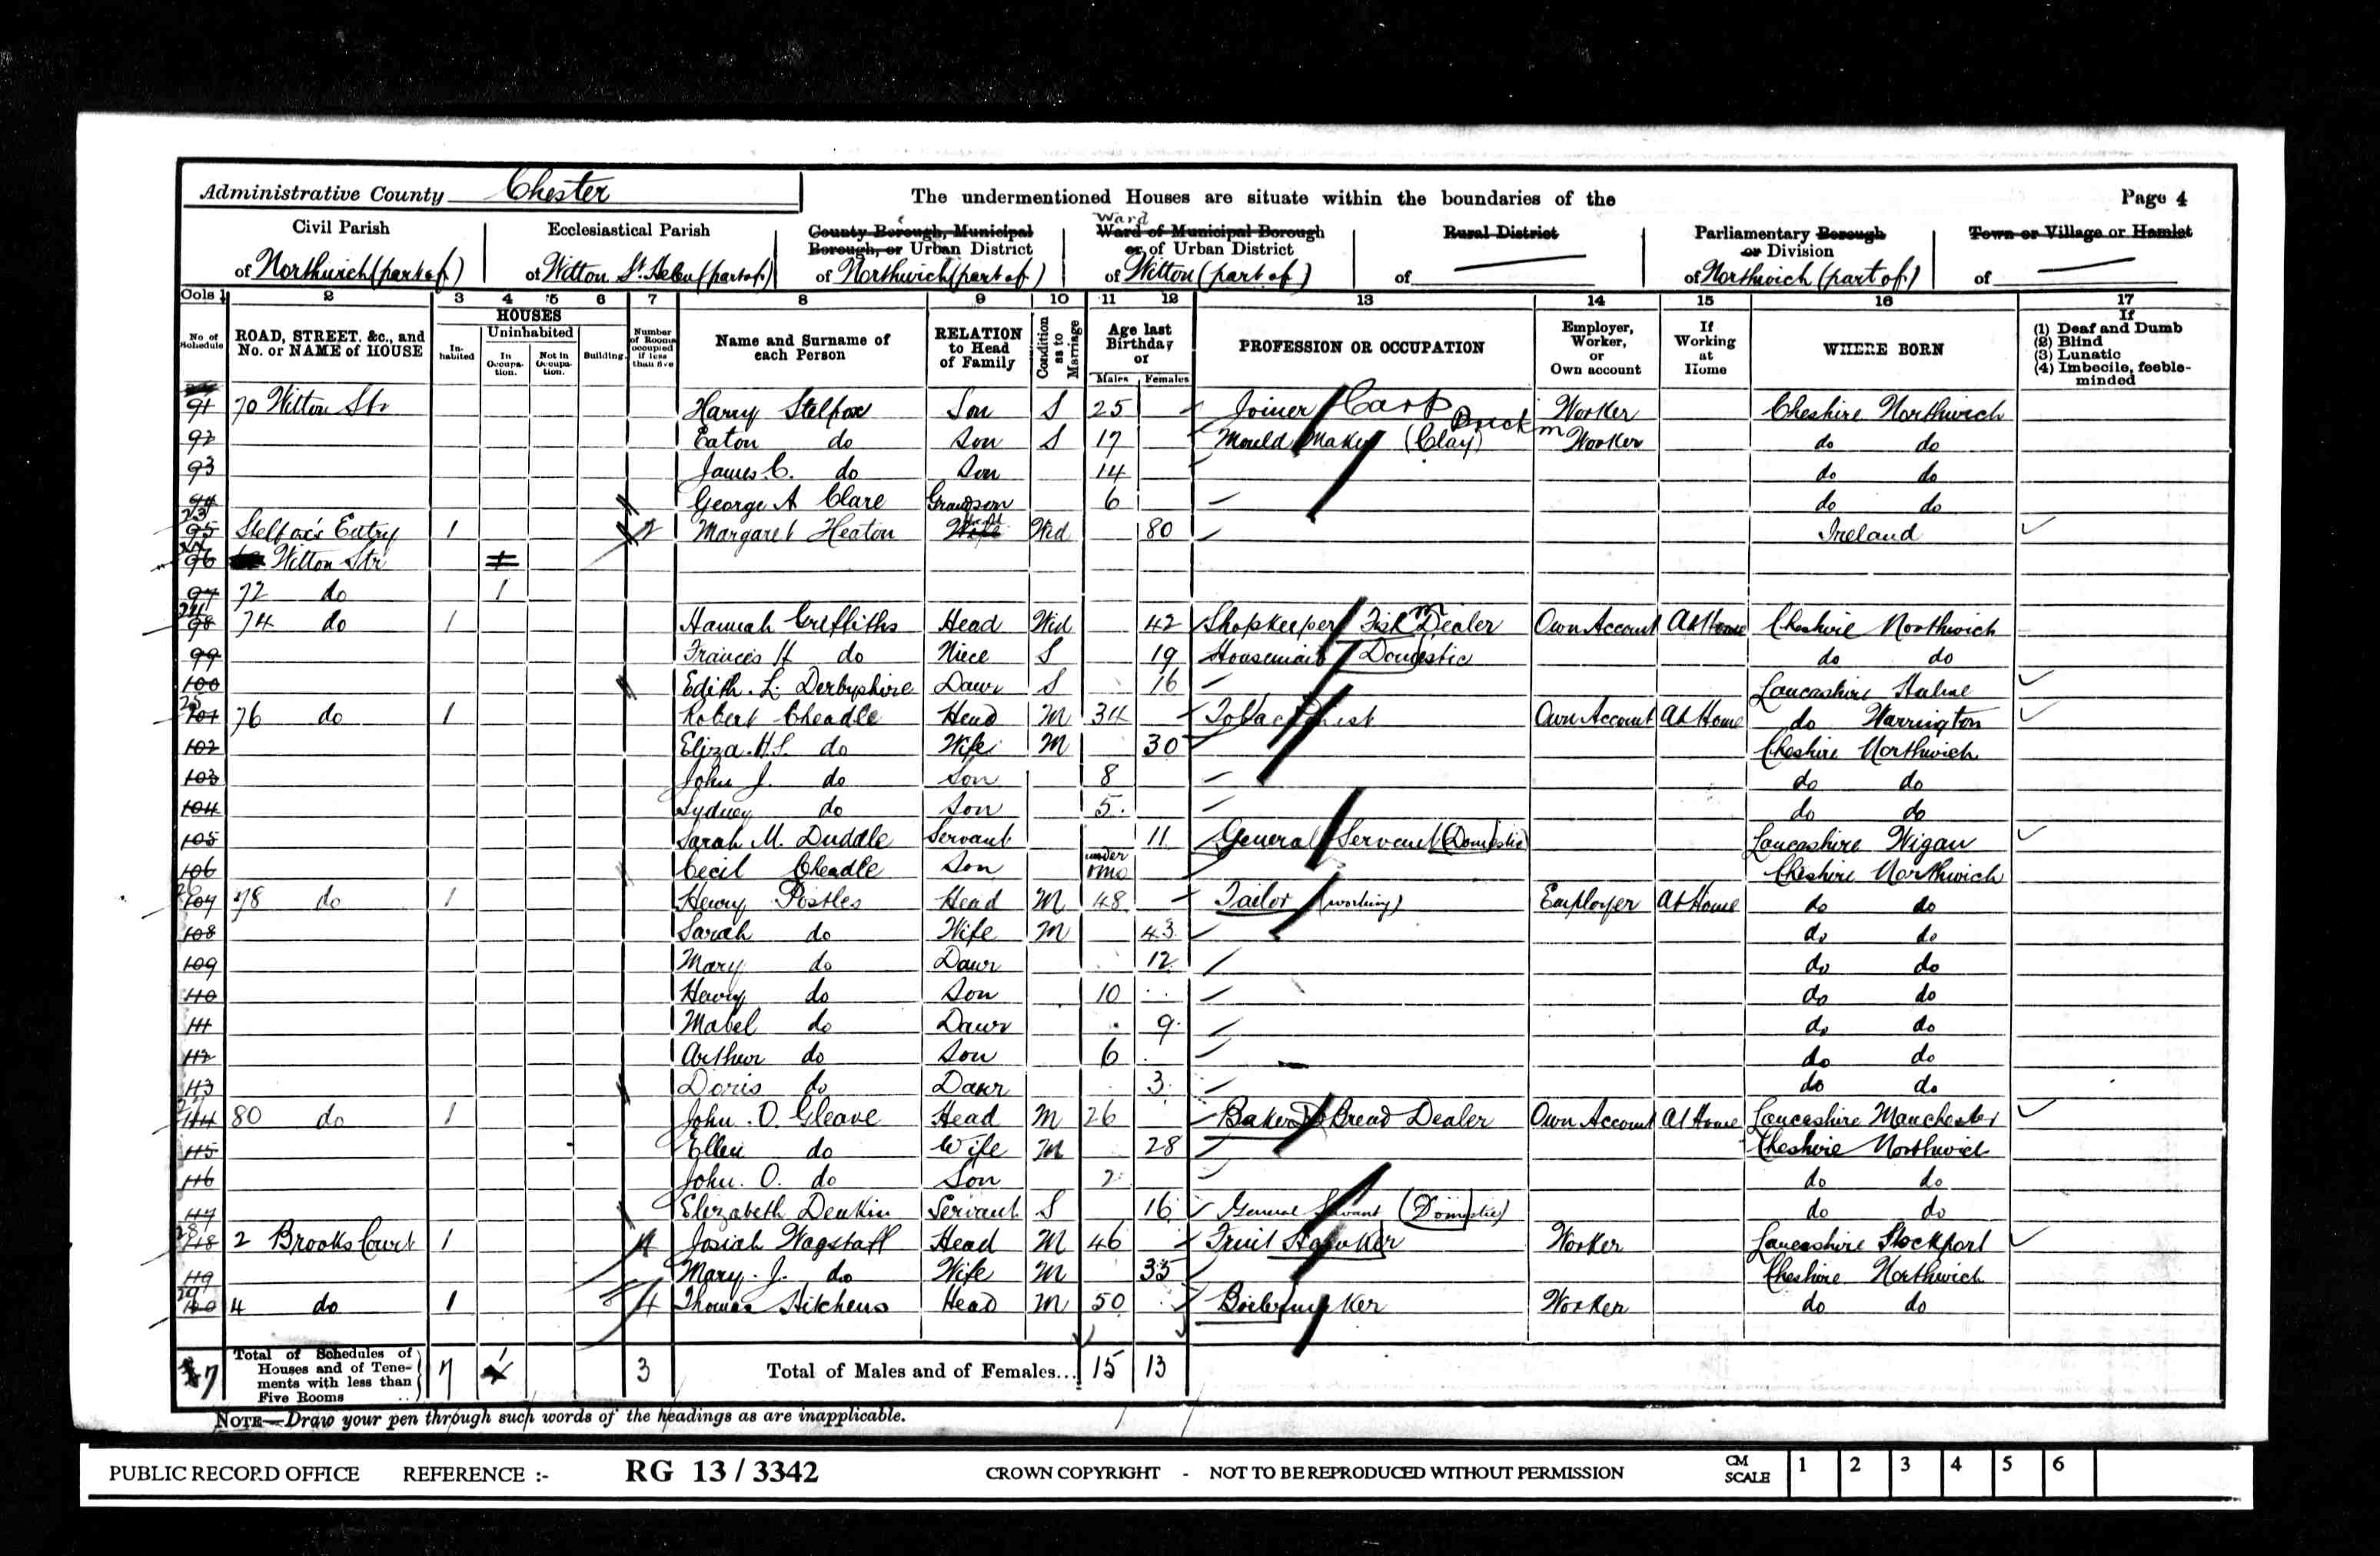 Administrative County Chester The undermentioned Houses are situate within the boundaries of the Page 4
Civil Parish of Northwich (part of)
Ecclesiastical Parish of Witton St. Helen (part of)
County Borough, Municipal Borough, or Urban District of Northwich (part of)
Ward
Ward of Municipal Borough or of Urban District of Witton (part of)
Rural District of
Parliamentary Borough or Division of Northwich (part of)
Town or Village or Hamlet of
Cols 1 2 3 4 5 6 7 8 9 10 11 12 13 14 15 16 17
No of Schedule
ROAD, STREET, &c., and No. or NAME of HOUSE
HOUSES
Inhabited
Uninhabited
In Occupation.
Not in Occupation.
Building.
Number of Rooms occupied if less than five
Name and Surname of each Person
RELATION to Head of Family
Condition as to Marriage
Age last Birthday or
Males Females
PROFESSION OR OCCUPATION
Employer, Worker, or Own account
If Working at Home
WHERE BORN
If
(1) Deaf and Dumb
(2) Blind
(3) Lunatic
(4) Imbecile, feeble-minded
91 70 Witton Str Harry Stelfox Son S 25 Joiner Carp Worker Cheshire Northwich
92 Eaton do Son S 17 Mould Maker (Clay) Brick m Worker do do
93 James C. do Son 14 do do
94 George A Clare Grandson 6 do do
23 95 Stelfox's Entry 1 2 Margaret Heaton Wife Head Wid 80 Ireland
96 Witton Str 1
97 72 do 1
24 98 74 do 1 Hannah Griffiths Head Wid 42 Shopkeeper Fish Dealer Own Account At Home Cheshire Northwich
99 Frances H do Niece S 19 Housemaid Domestic do do
100 Edith L. Derbyshire Daur S 16 Lancashire Hulme
25 101 76 do 1 Robert Cheadle Head M 34 Tobacconist Own Account At Home do Warrington
102 Eliza H.S. do Wife M 30 Cheshire Northwich
103 John J. do Son 8 do do
104 Sydney do Son 5 do do
105 Sarah M. Duddle Servant 11 General Servant (Domestic) Lancashire Wigan
106 Cecil Cheadle Son under mo Cheshire Northwich
26 107 78 do 1 Henry Postles Head M 48 Tailor (working) Employer At Home do do
108 Sarah do Wife M 43 do do
109 Mary do Daur 12 do do
110 Henry do Son 10 do do
111 Mabel do Daur 9 do do
112 Arthur do Son 6 do do
113 Doris do Daur 3 do do
27 114 80 do 1 John. O. Gleave Head M 26 Baker & Bread Dealer Own Account At Home Lancashire Manchester
115 Ellen do Wife M 28 Cheshire Northwich
116 John. O. do Son 2 do do
117 Elizabeth Deakin Servant S 16 General Servant (Domestic) do do
28 118 2 Brooks Court 1 4 Josiah Wagstaff Head M 46 Fruit Hawker Worker Lancashire Stockport
119 Mary. J. do Wife M 35 Cheshire Northwich
29 120 4 do 1 4 Thomas Hitchens Head M 50 Boilermaker Worker do do
7 Total of Schedules of Houses and of Tenements with less than Five Rooms .. 7 1 3 Total of Males and of Females... 15 13
NOTE—Draw your pen through such words of the headings as are inapplicable.
PUBLIC RECORD OFFICE REFERENCE :- RG 13 / 3342 CROWN COPYRIGHT - NOT TO BE REPRODUCED WITHOUT PERMISSION CM SCALE 1 2 3 4 5 6